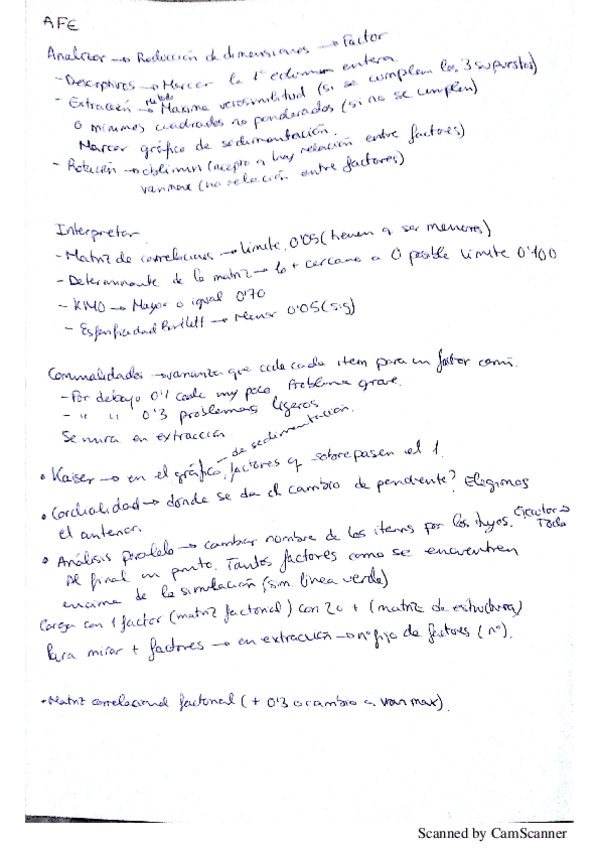 AFE
Analizar → Reducción de dimensiones → Factor
- Descriptivos → Marcar la 1ª columna entera
- Extracción → Máxima verosimilitud (si se cumplen los 3 supuestos)
o mínimos cuadrados no ponderados (si no se cumplen)
Marcar gráfico de sedimentación.
- Rotación → oblimin (acepto q hay relación entre factores)
varimax (no relación entre factores)
Interpretar
- Matriz de correlaciones → límite 0'05 (tienen q ser menores)
- Determinante de la matriz → lo + cercano a 0 posible límite 0'100
- KMO → Mayor o igual 0'70
- Esfericidad Bartlett → Menor 0'05 (sig)
Comunalidades → varianza que cede cada item para un factor común.
- Por debajo 0'1 cede muy poco. Problema grave.
- " " 0'3 problemas ligeros
Se mira en extracción
• Kaiser → en el gráfico de sedimentación, factores q sobrepasen el 1.
• → donde se da el cambio de pendiente? Elegimos
el anterior.
• Análisis paralelo → cambiar nombre de los items por los tuyos. Ejecutar → Todo
Al final un punto. Tantos factores como se encuentren
encima de la simulación (sim. línea verde)
Carga con 1 factor (matriz factorial) con 2 o + (matriz de estructura)
Para mirar + factores → en extracción → nº fijo de factores (nº).
• Matriz correlacional factorial (+ 0'3 o cambio a varimax).
Scanned by CamScanner